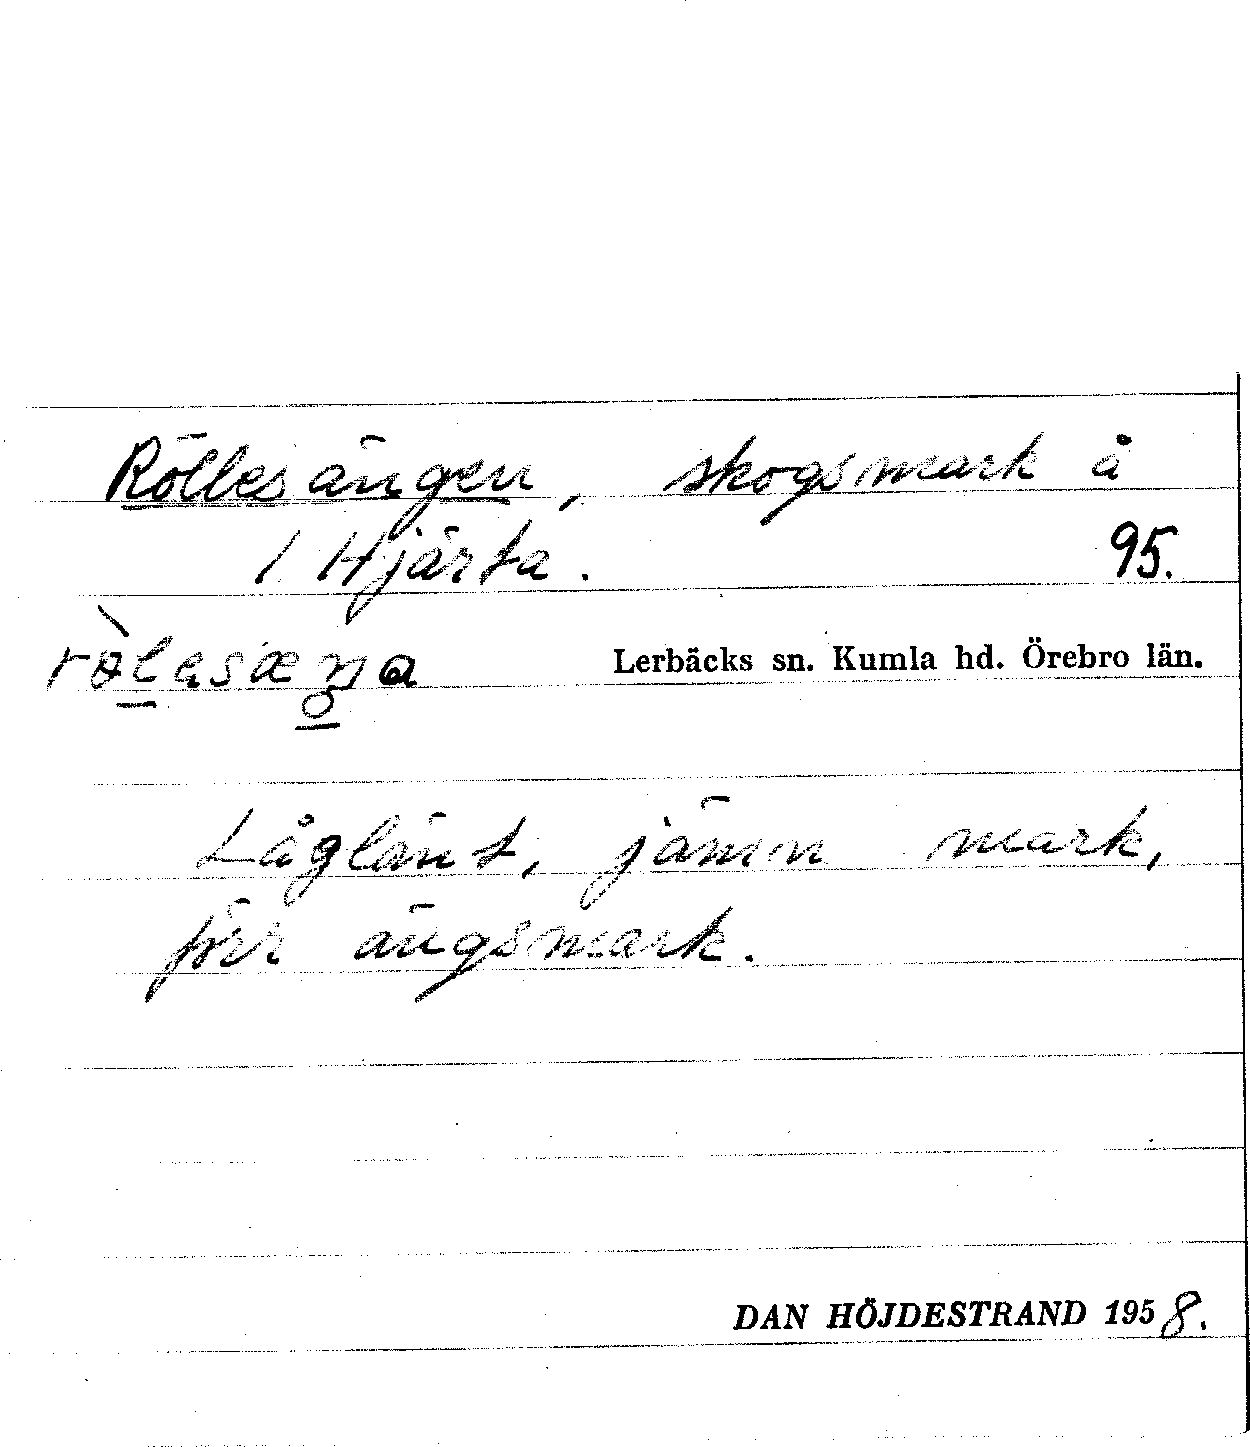 Röllesängen, skogsmark å
1 Hjärta. 95.
Lerbäcks sn. Kumla hd. Örebro län.
Låglänt, jämn mark,
förr ängsmark.
DAN HÖJDESTRAND 1958.